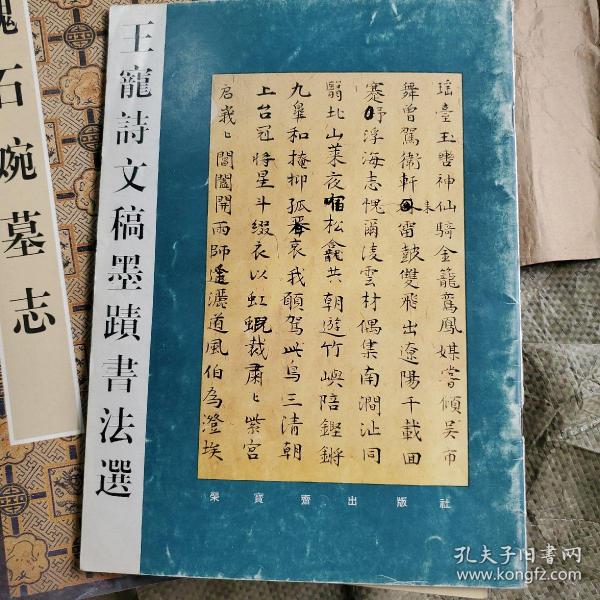 王寵詩文稿墨蹟書法選
瑶臺玉鸞神仙騎金籠鸞鳳媒嘗傾吴市
舞曾駕衛軒未雷鼓雙飛出遼陽千載回
蹇浮海志愧爾凌雲材偶集南澗沚同
翳北山萊夜松龕共朝遊竹嶼陪鏗鏘
九皋和掩抑孤哀我願駕此鳥三清朝
上台冠將星斗綴衣以虹蜺裁肅〻紫宮
启峩〻閶闔開雨師逢灑道風伯為澄埃
榮寶齋出版社
石婉墓志
孔夫子旧书网
www.kongfz.com